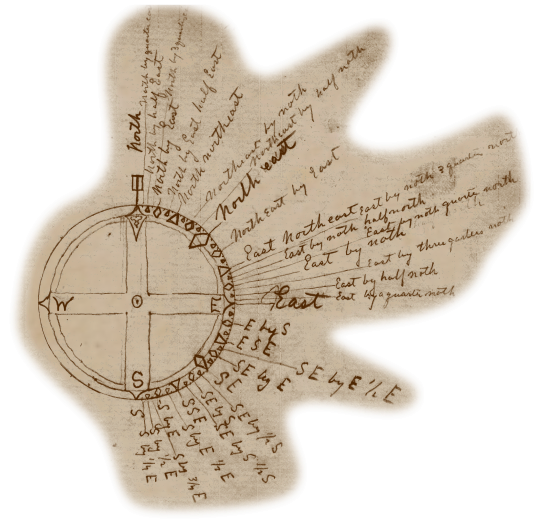 North
North by quarter east
North by half East
North by 3 quarter
North by East
North by East half East
North northeast
Northeast by noth
Northeast by half noth
North east
North East by East
East North east
East by noth 3 quarter nort
East by noth half north
East by noth quarter north
East by noth
East by three quarters noth
East by half noth
East
East by a quarte noth
E by S
E S E
S E by E ½ E
SE by E
S E
SE by ½ S
SE by S
S S E
S by E
S by ¾ E
S by ½ E
S by ¼ E
S
W
E
S